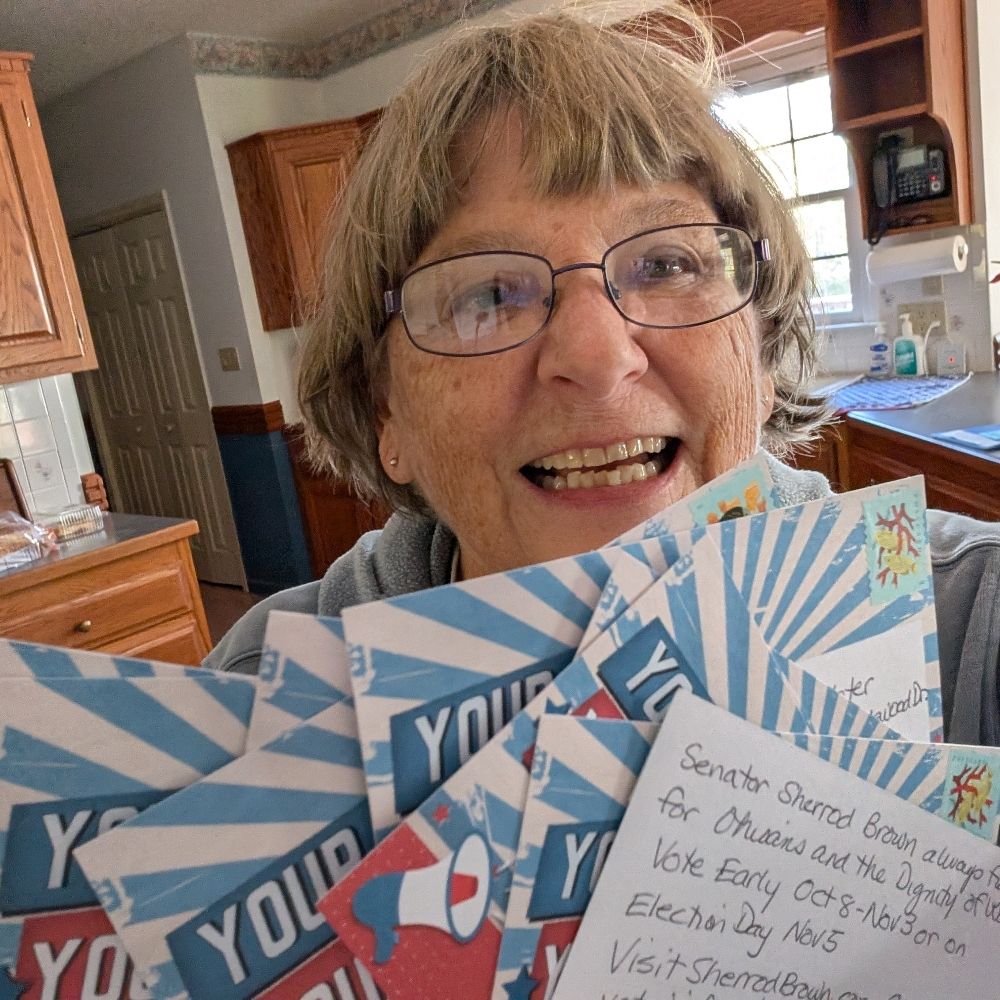 nter
awood Dr.
YOUR
YOUR
YO
YOUR
YOU
YO
YO
YOU
YO
Senator Sherrod Brown always f
for Ohioans and the Dignity of W
Vote Early Oct 8-Nov 3 or on
Election Day Nov 5
Visit SherrodBrown.com